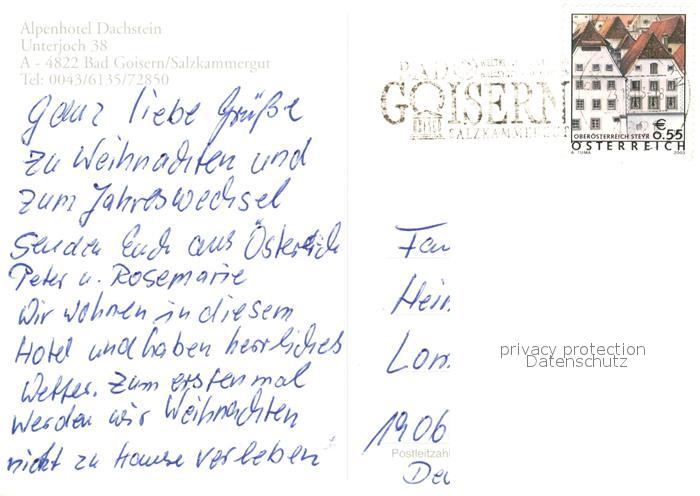 Alpenhotel Dachstein
Unterjoch 38
A - 4822 Bad Goisern/Salzkammergut
Tel: 0043/6135/72850
Ganz liebe Grüße
zu Weihnachten und
zum Jahreswechsel
senden Euch aus Österreich
Peter u. Rosemarie
Wir wohnen in diesem
Hotel und haben herrliches
Wetter. Zum ersten mal
werden wir Weihnachten
nicht zu Hause verleben
BAD
GOISERN
SALZKAMMERGUT
OBERÖSTERREICH STEYR € 0.55
ÖSTERREICH
A. TUMA 2003
Fam
Hein
Lom
1906
Postleitzahl
Deu
privacy protection
Datenschutz